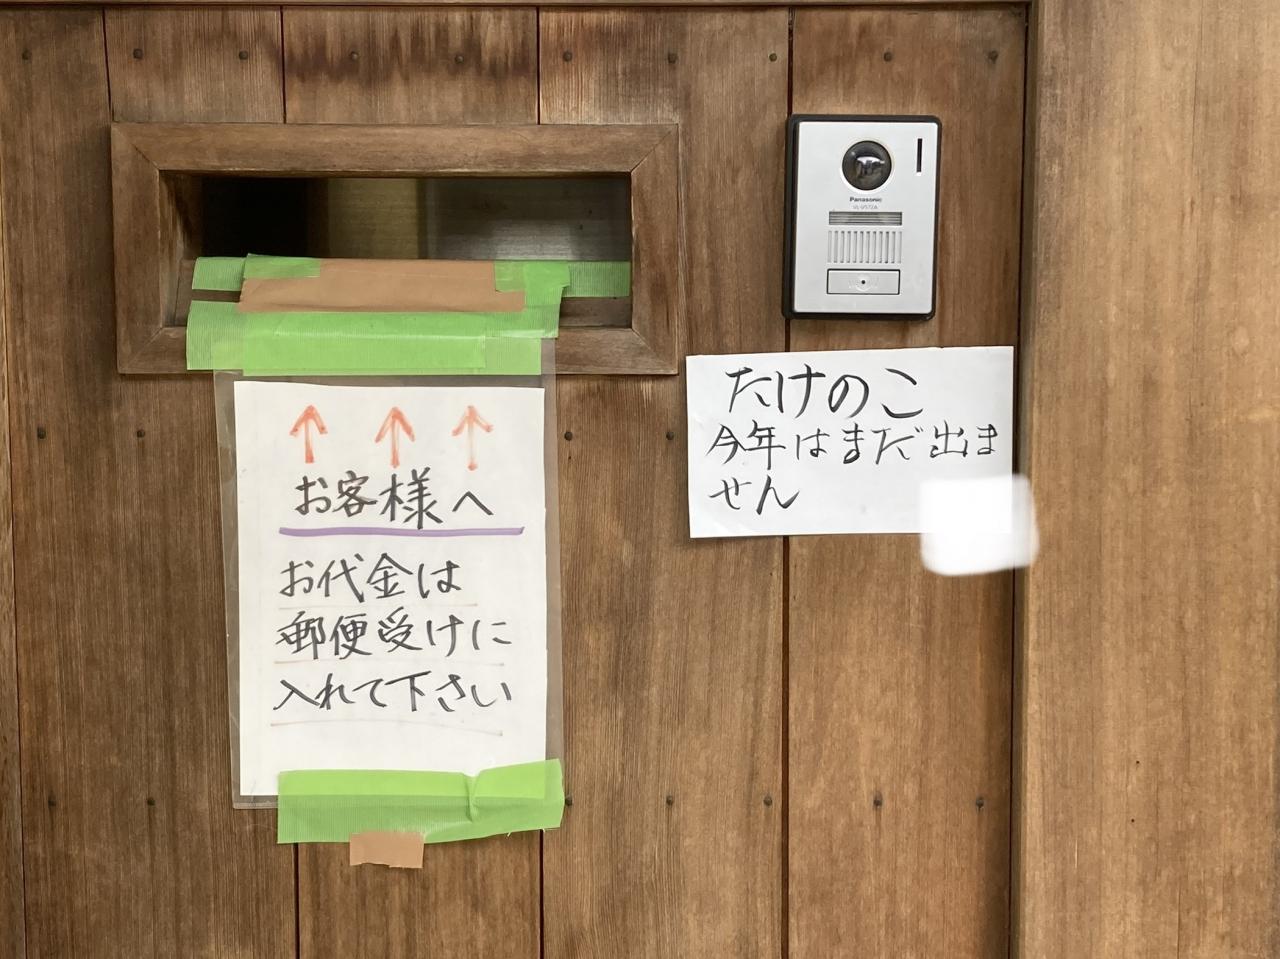 お客様へ
お代金は
郵便受けに
入れて下さい
Panasonic
VL-V572A
たけのこ
今年はまだ出ま
せん